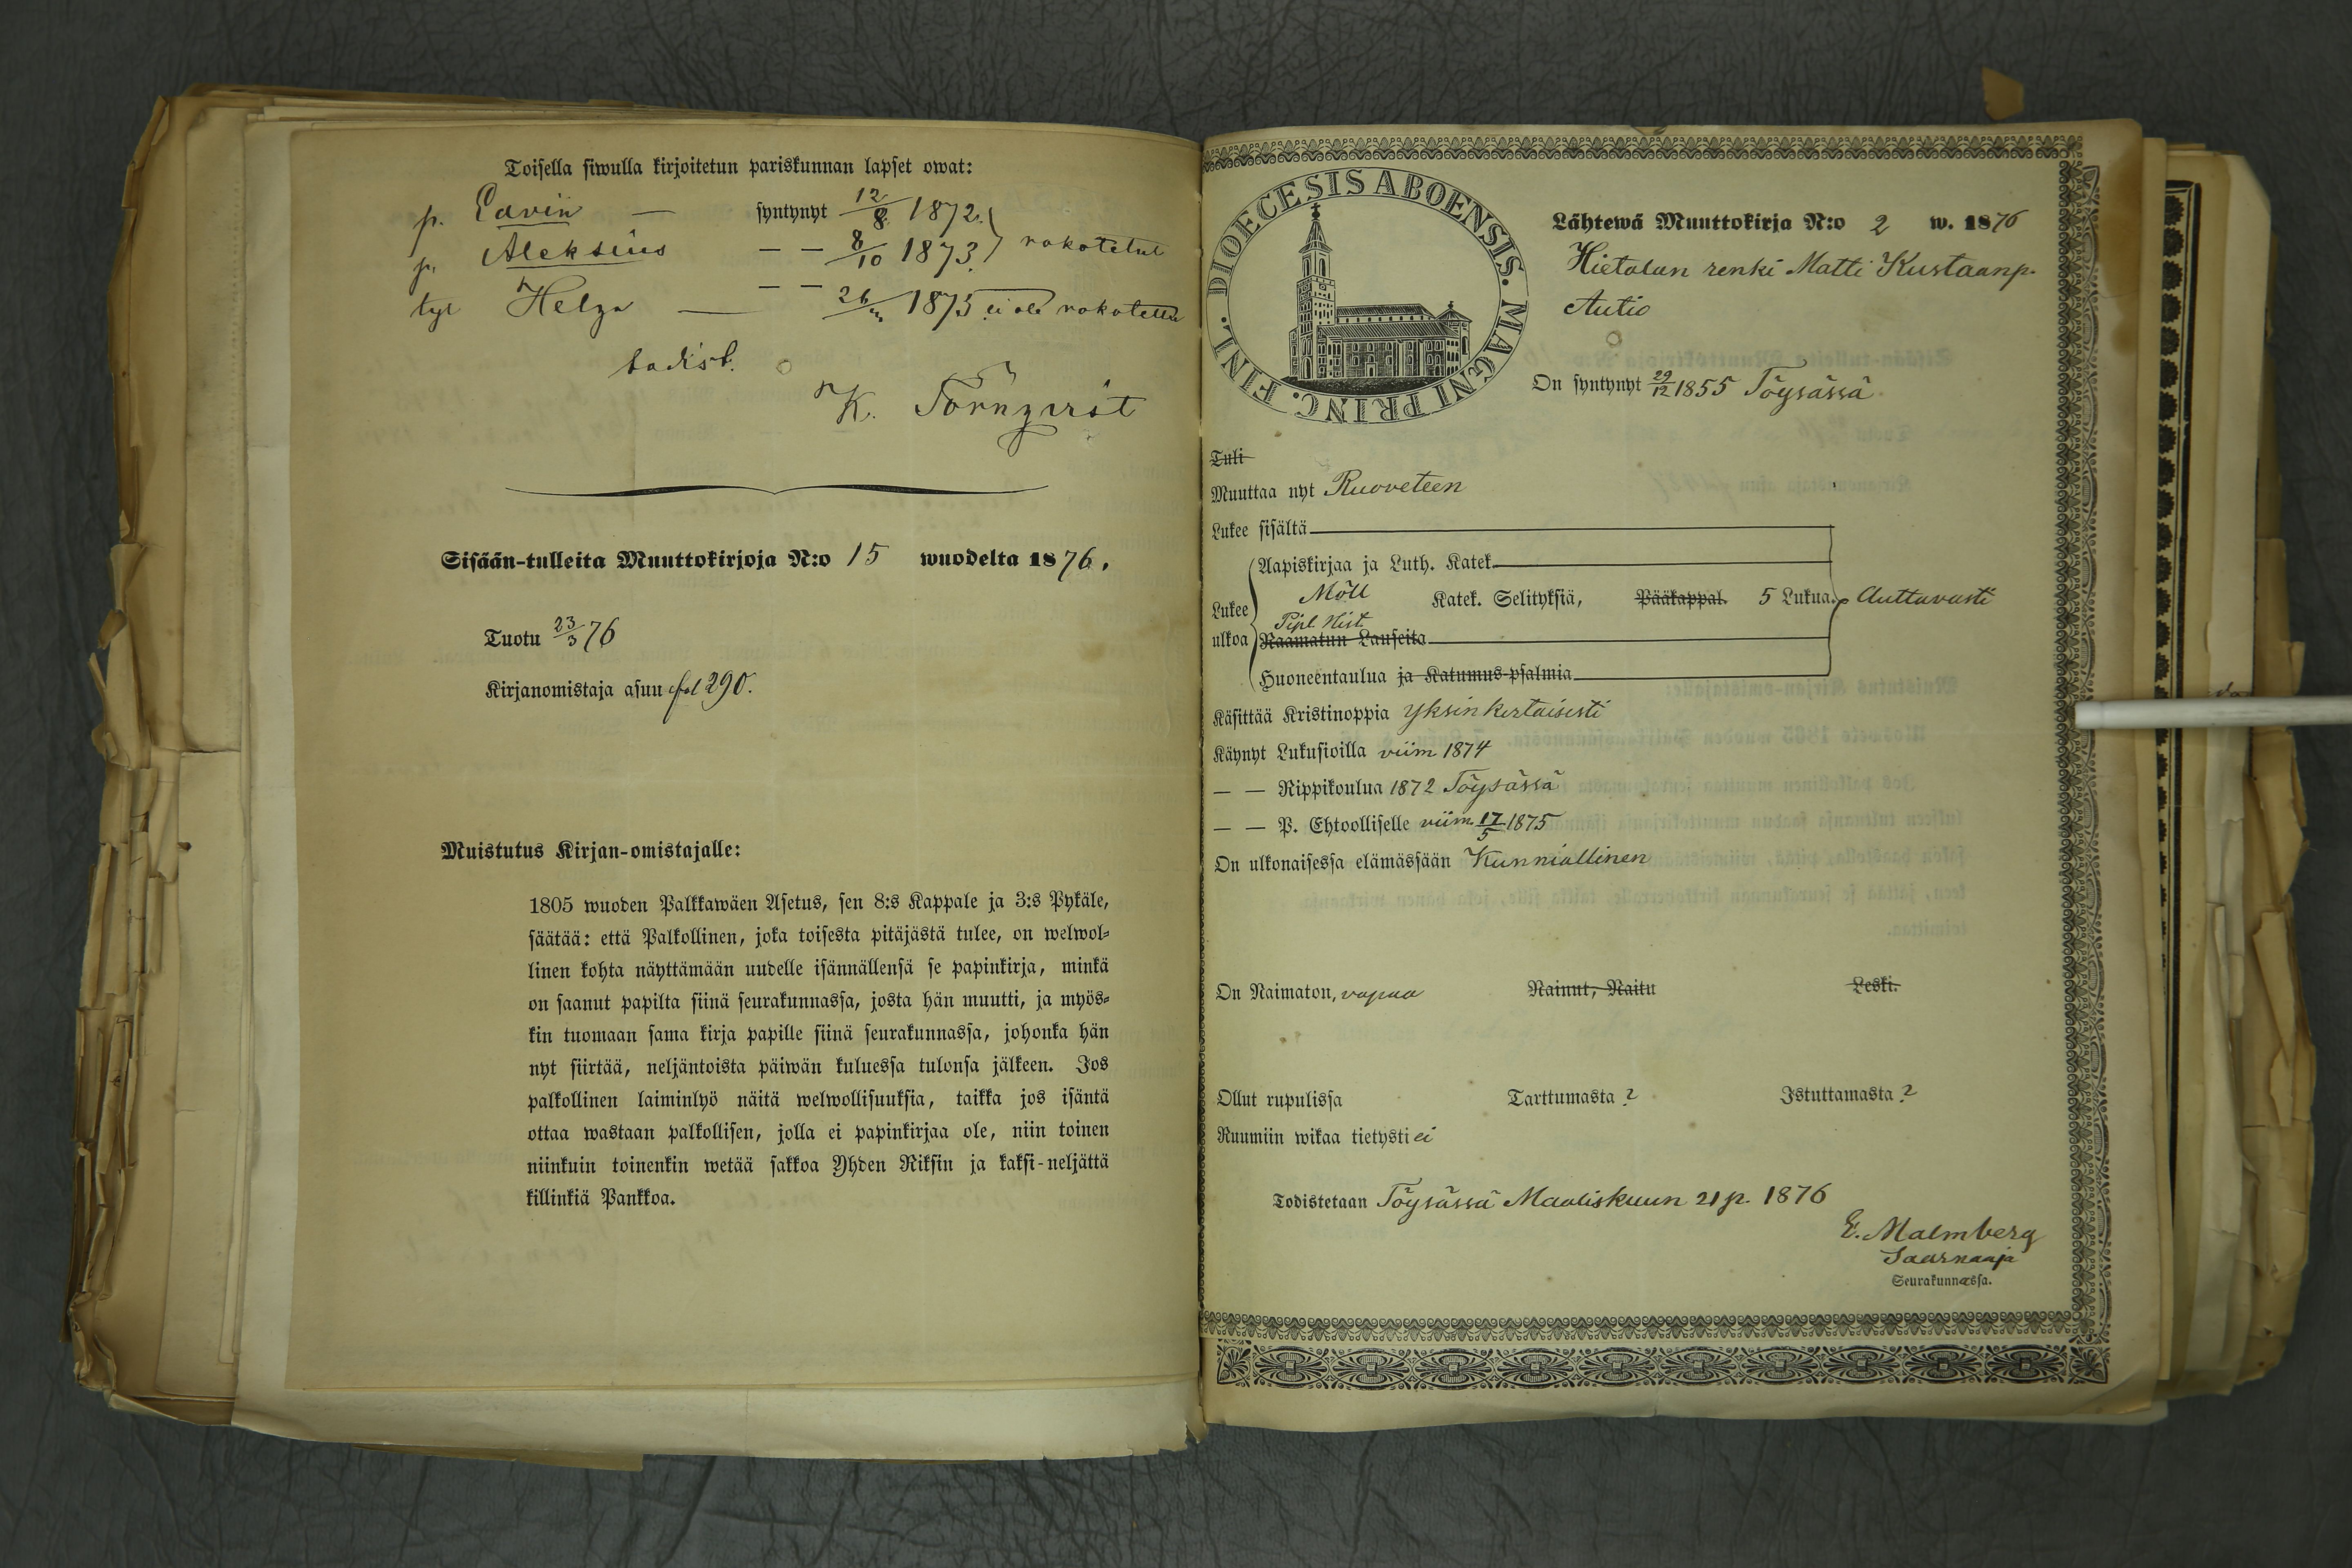 Toisella siwulla kirjoitetun pariskunnan lapset owat:
p. Edvin — syntynyt 12/8 1872.
p. Aleksius — — 8/10 1873. rokotetut
tyt Helga — — — 26/ 1875 ei ole rokotettu
todist.
K. Törnqvist
Sisään-tulleita Muuttokirjoja N:o 15 wuodelta 1876.
Tuotu 23/3 76
Kirjanomistaja asuu fol 290.
Muistutus Kirjan-omistajalle:
1805 wuoden Palkkawäen Asetus, sen 8:s Kappale ja 3:s Pykäle,
säätää: että Palkollinen, joka toisesta pitäjästä tulee, on welwol-
linen kohta näyttämään uudelle isännällensä se papinkirja, minkä
on saanut papilta siinä seurakunnassa, josta hän muutti, ja myös-
kin tuomaan sama kirja papille siinä seurakunnassa, johonka hän
nyt siirtää, neljäntoista päiwän kuluessa tulonsa jälkeen. Jos
palkollinen laiminlyö näitä welwollisuuksia, taikka jos isäntä
ottaa wastaan palkollisen, jolla ei papinkirjaa ole, niin toinen
niinkuin toinenkin wetää sakkoa Yhden Riksin ja kaksi-neljättä
killinkiä Pankkoa.
DIOECESIS ABOENSIS. MAGNI PRINC. FINL.
Lähtewä Muuttokirja N:o 2 w. 1876
Hietalan renki Matti Kustaanp.
Autio
On syntynyt 29/12 1855 Töysässä
Tuli
Muuttaa nyt Ruoveteen
Lukee sisältä
Aapiskirjaa ja Luth. Katek.
Lukee Möll Katek. Selityksiä, Pääkappal. 5 Lukua. Auttavasti
Pipl. Hist.
ulkoa Raamatun Lauseita
Huoneentaulua ja Katumus-psalmia
Käsittää Kristinoppia yksinkertaisesti
Käynyt Lukusioilla viim 1874
— — Rippikoulua 1872 Töysässä
— — P. Ehtoolliselle viim. 17/5 1875
On ulkonaisessa elämässään Kunniallinen
On Naimaton, vapaa Nainut, Naitu Leski.
Ollut rupulissa Tarttumasta ? Istuttamasta ?
Ruumiin wikaa tietysti ei
Todistetaan Töysässä Maaliskuun 21 p. 1876
E. Malmberg
Saarnaaja
Seurakunnassa.